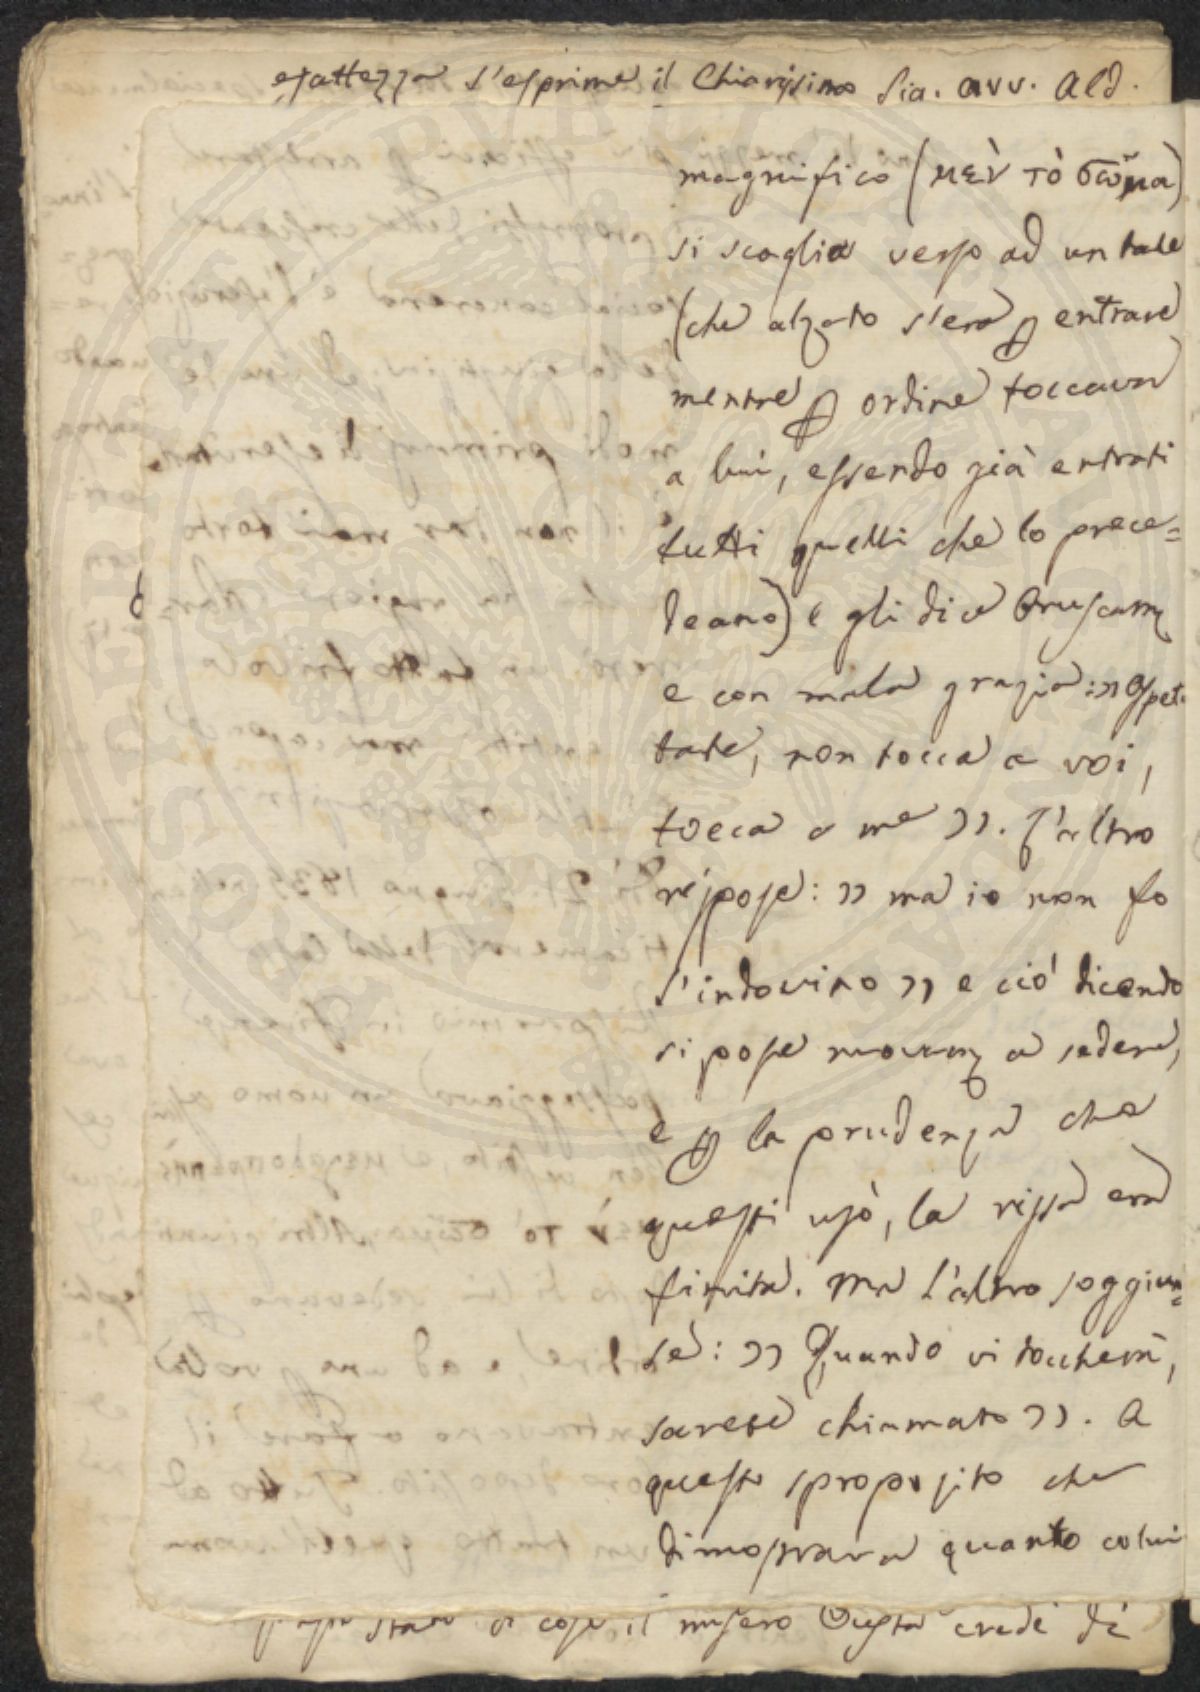 esattezza s'esprime il Chiarissimo Sig. avv. Ald.
magnifico (μὲν τὸ σῶμα)
si scaglia verso ad un tale
(che alzato s'era ꝑ entrare
mentre ꝑ ordine toccava
a lui, essendo già entrati
tutti quelli che lo prece=
deano) e gli dice bruscam
e con mala grazia: „ Aspet-
tate, non tocca a voi,
tocca a me „. L'altro
rispose: „ ma io non fo
l'indovino „ e ciò dicendo
si pose nuovam a sedere,
e ꝑ la prudenza che
questi usò, la rissa era
finita. Ma l'altro soggiun=
se: „ Quando vi toccherà,
sarete chiamato „. A
questo sproposito che
dimostrava quanto colui
stato di cose il misero crede di